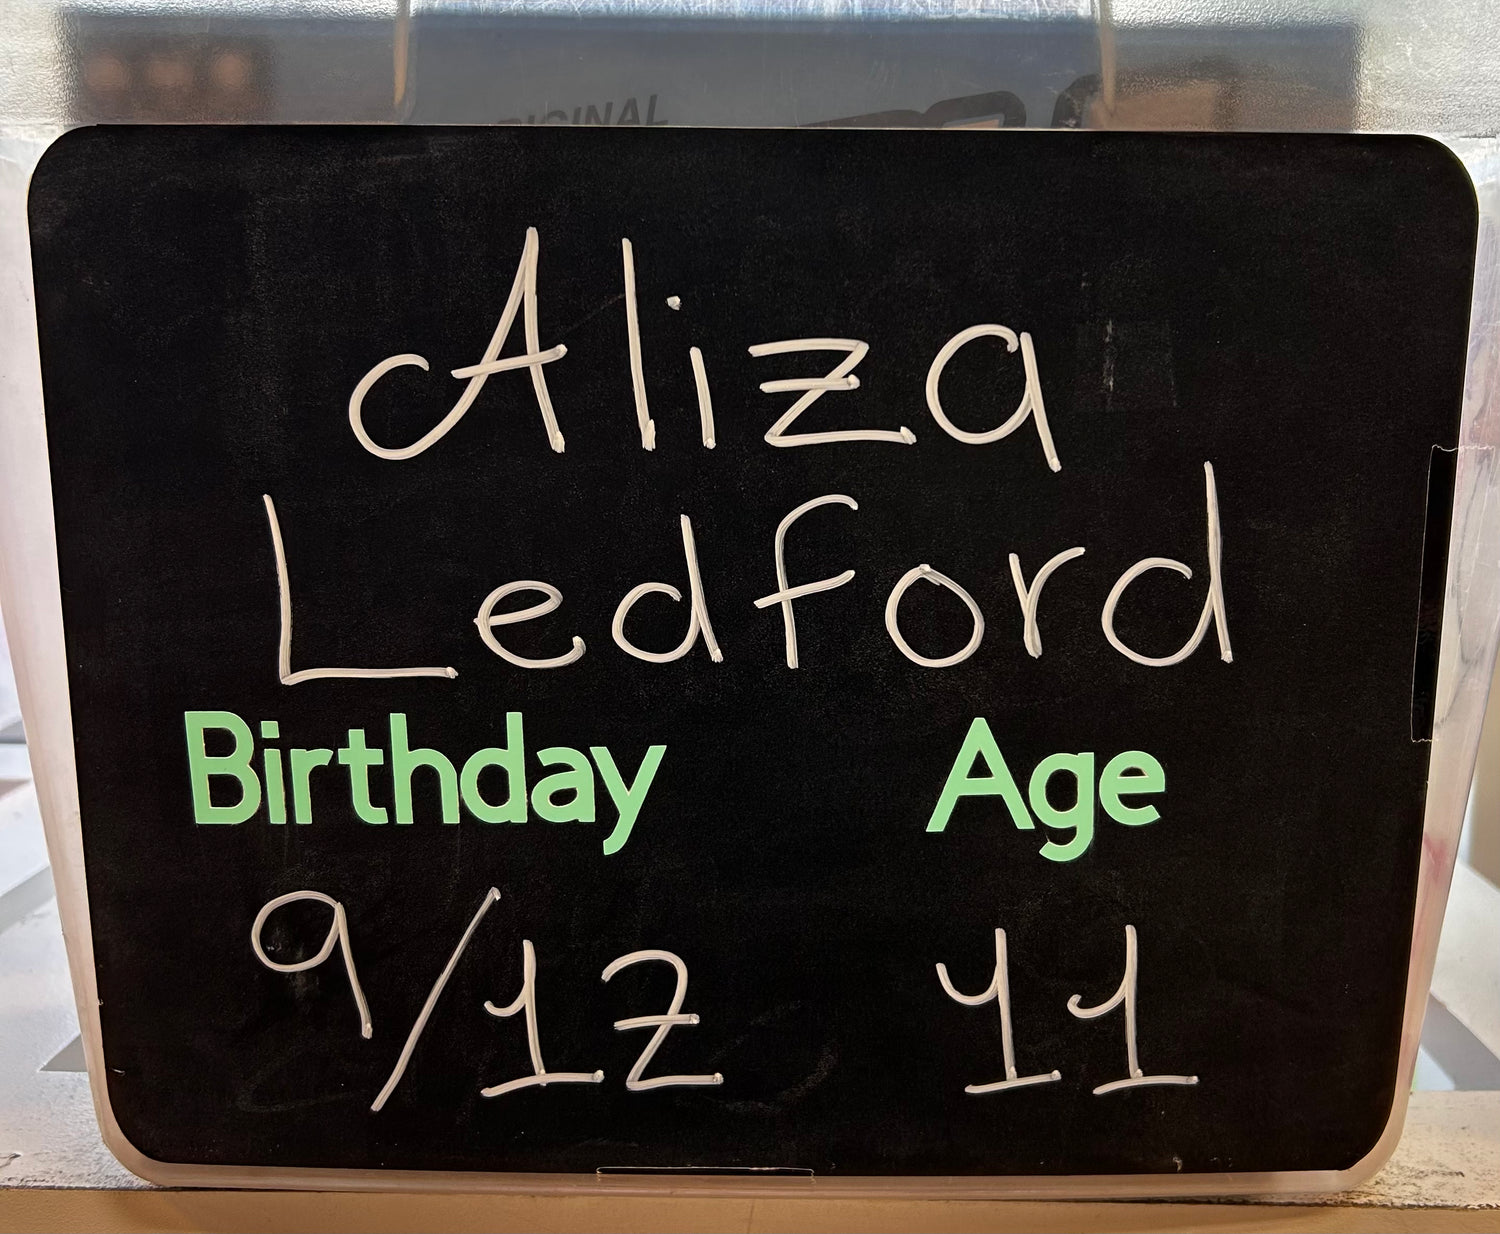 ORIGINAL
Aliza
Ledford
Birthday Age
9/12 11